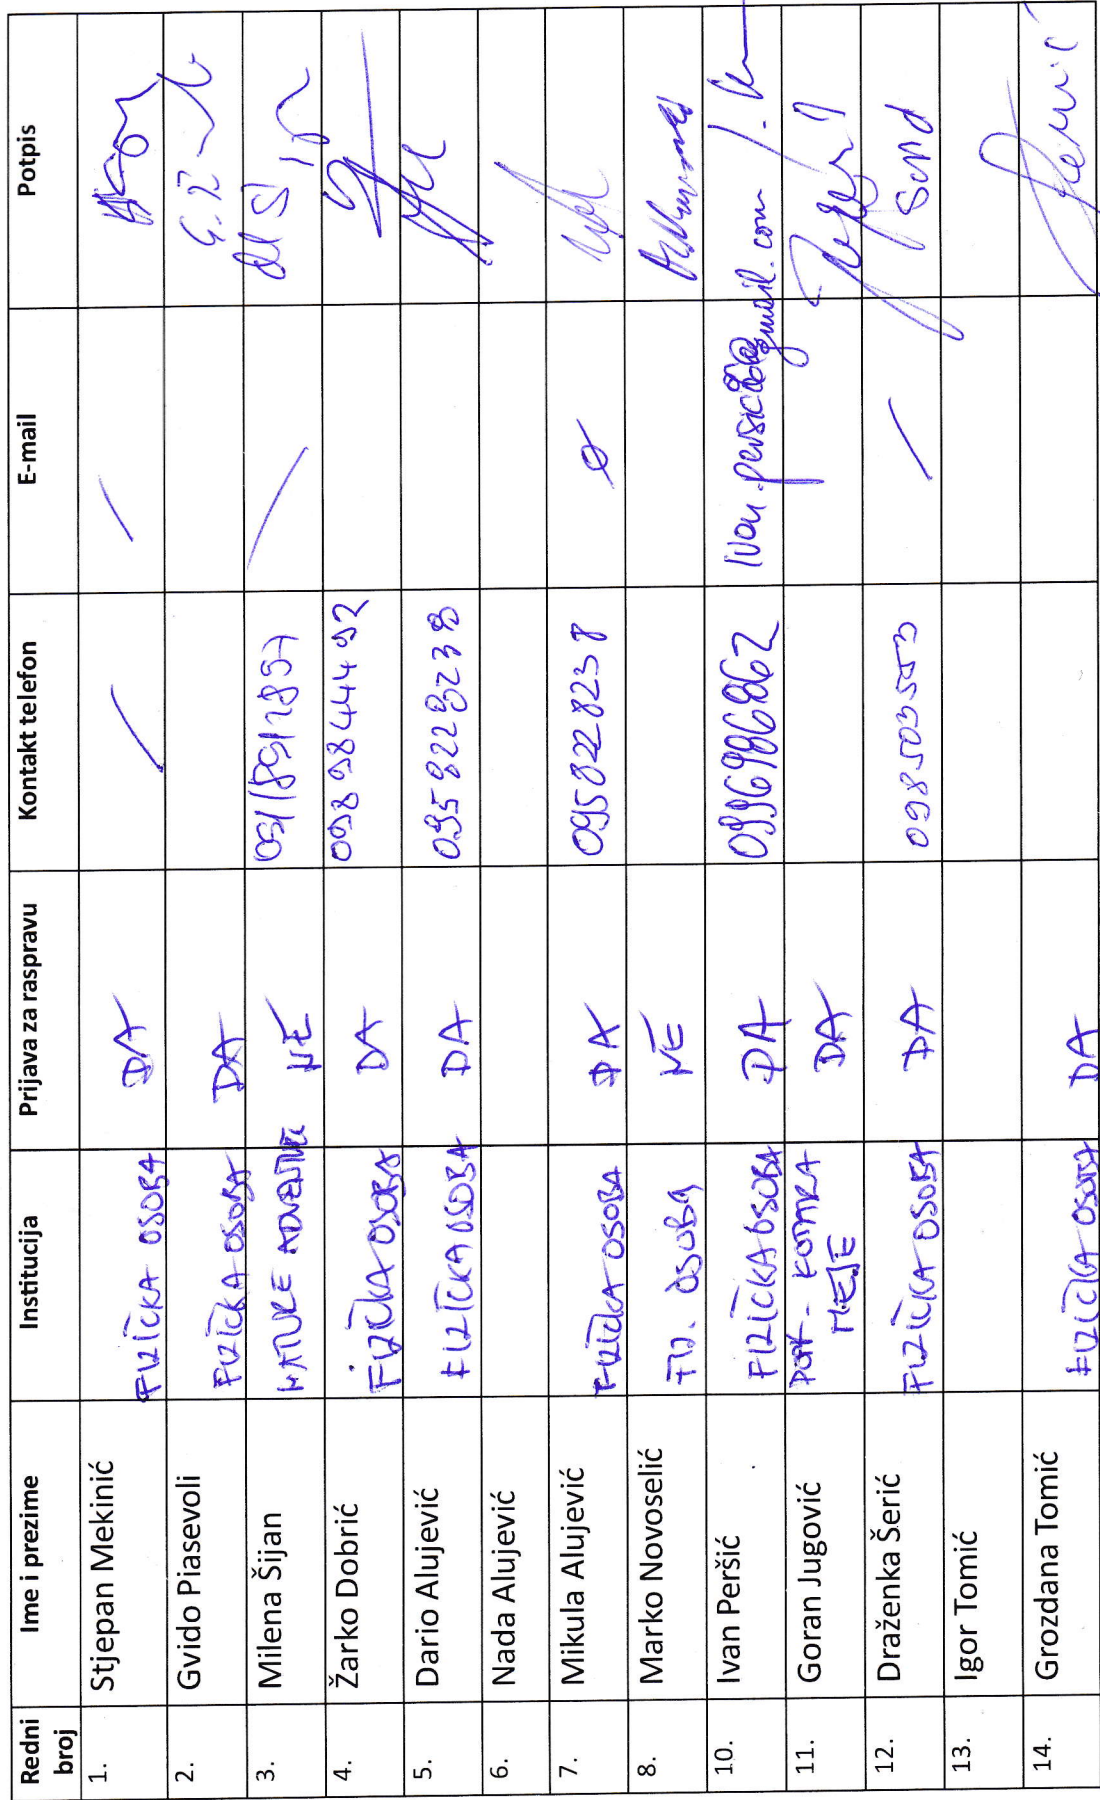 Redni broj Ime i prezime Institucija Prijava za raspravu Kontakt telefon E-mail Potpis
1. Stjepan Mekinić FIZIČKA OSOBA DA
2. Gvido Piasevoli FIZIČKA OSOBA DA
3. Milena Šijan NATURE ADVENTURE NE 091/8912897
4. Žarko Dobrić FIZIČKA OSOBA DA 0989844492
5. Dario Alujević FIZIČKA OSOBA DA 0958228238
6. Nada Alujević
7. Mikula Alujević FIZIČKA OSOBA DA 0958228238
8. Marko Novoselić FIZ. OSOBA NE
10. Ivan Peršić FIZIČKA OSOBA DA 0996986862
11. Goran Jugović DA
12. Draženka Šerić FIZIČKA OSOBA DA 098503553
13. Igor Tomić
14. Grozdana Tomić FIZIČKA OSOBA DA